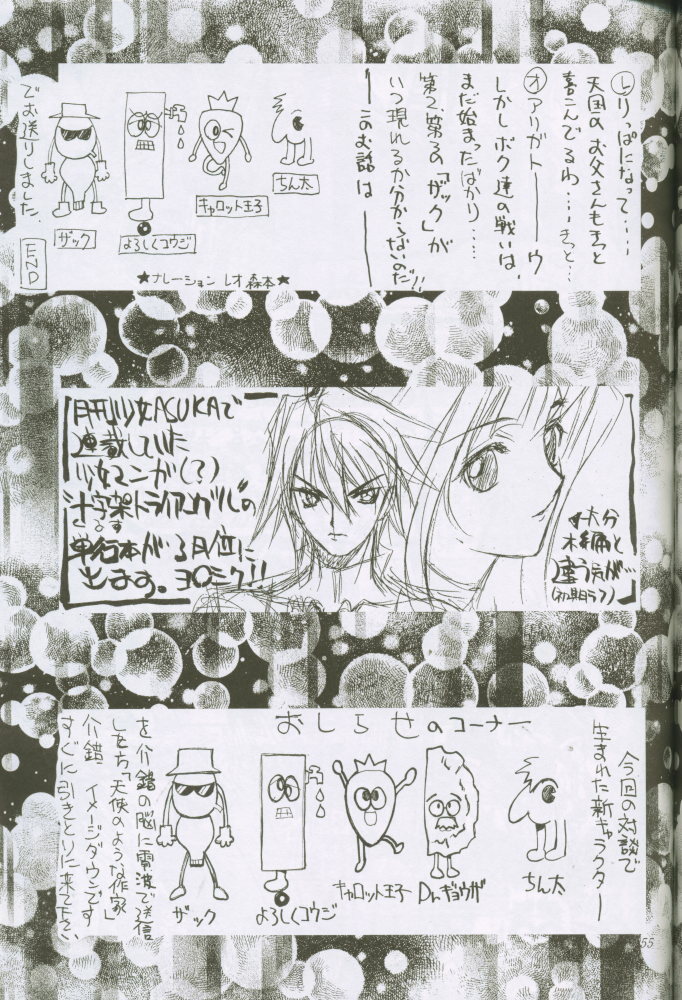 Ⓛりっぱになって……
天国のお父さんもきっと
喜こんでるわ……きっと…
㋔アリガトーーーウ
しかしボク達の戦いは、
まだ始まったばかり……
第2、第3の「ザック」が
いつ現れるか分からないのだ!!
――このお話は――
ちん太
キャロット王子
よろしくコウジ
ザック
★ナレーション レオ森本★
でお送りしました。
END
月刊少女ASUKAで
連載していた
少女マンガ(?)
十字架トライアングルの
単行本が3月位に
出ます。ヨロシク!!
大分
本編と
違う気が…
(初期ラフ)
おしらせのコーナー
今回の対談で
生まれた新キャラクター
ちん太
Dr.ギョウザ
キャロット王子
よろしくコウジ
ザック
を介錯の脳に電波で送信
した方「天使のような作家
介錯」イメージダウンです
すぐに引きとりに来て下さい
55